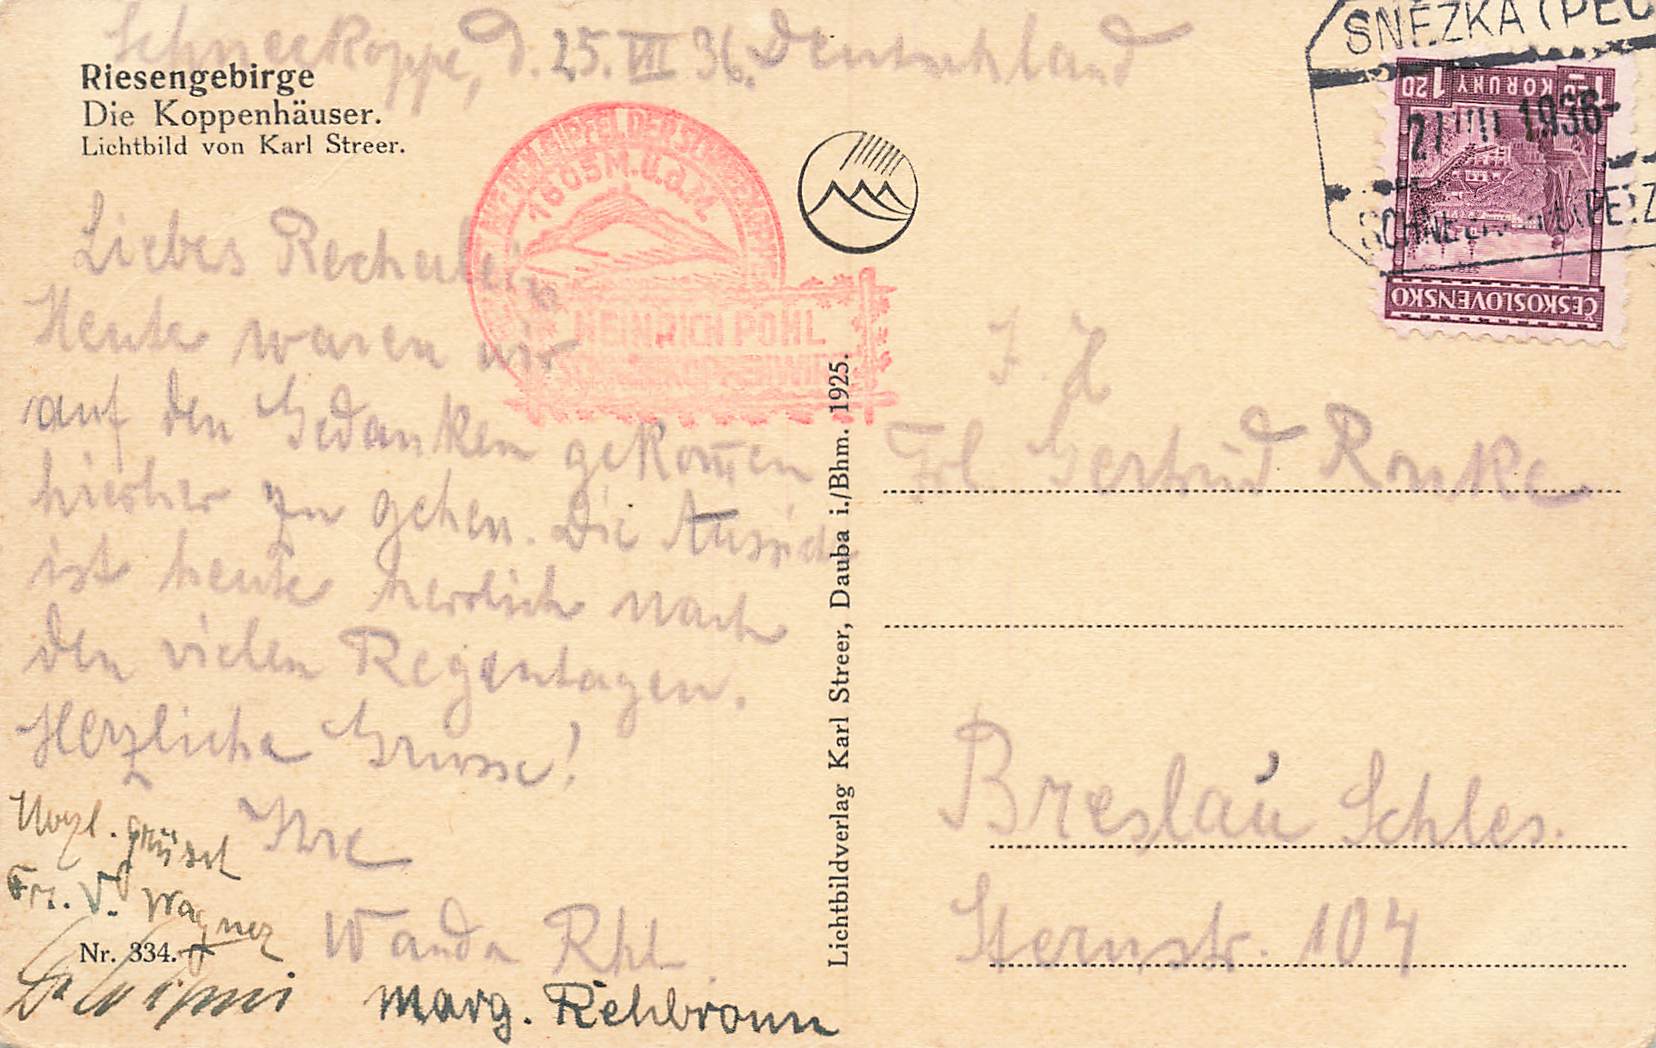 Schneekoppe, d. 25. VII 36. Deutschland
Riesengebirge
Die Koppenhäuser.
Lichtbild von Karl Streer.
AUF DEM GIPFEL DER SCHNEEKOPPE
1605 M.Ü.D.M.
HEINRICH POHL
SCHNEEKOPPENWIRT
Liebes
Heute waren wir
auf den Gedanken gekom̅en
hierher zu gehen. Die Aussicht
ist heute herrlich nach
den vielen Regentagen.
Herzliche Grüsse!
Ihre
Wanda
grüsst
Fr. V. Wagner
Marg. Rehbronn
Nr. 334.
Lichtbildverlag Karl Streer, Dauba i./Bhm. 1925.
SNĚZKA (PEC
1936
1.20 KORUNY 1.20
ČESKOSLOVENSKO
Frl. Gertrud
Breslau Schles.
Sternstr. 104